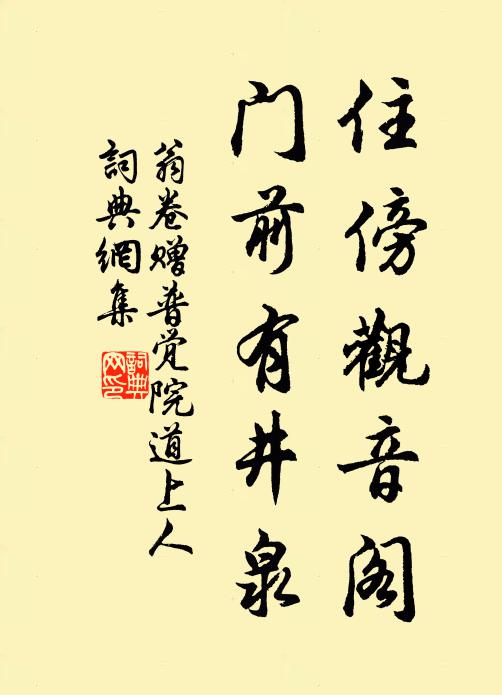 住傍觀音阁
门前有井泉
翁卷赠普觉院道上人
詞典網集
詞典网印